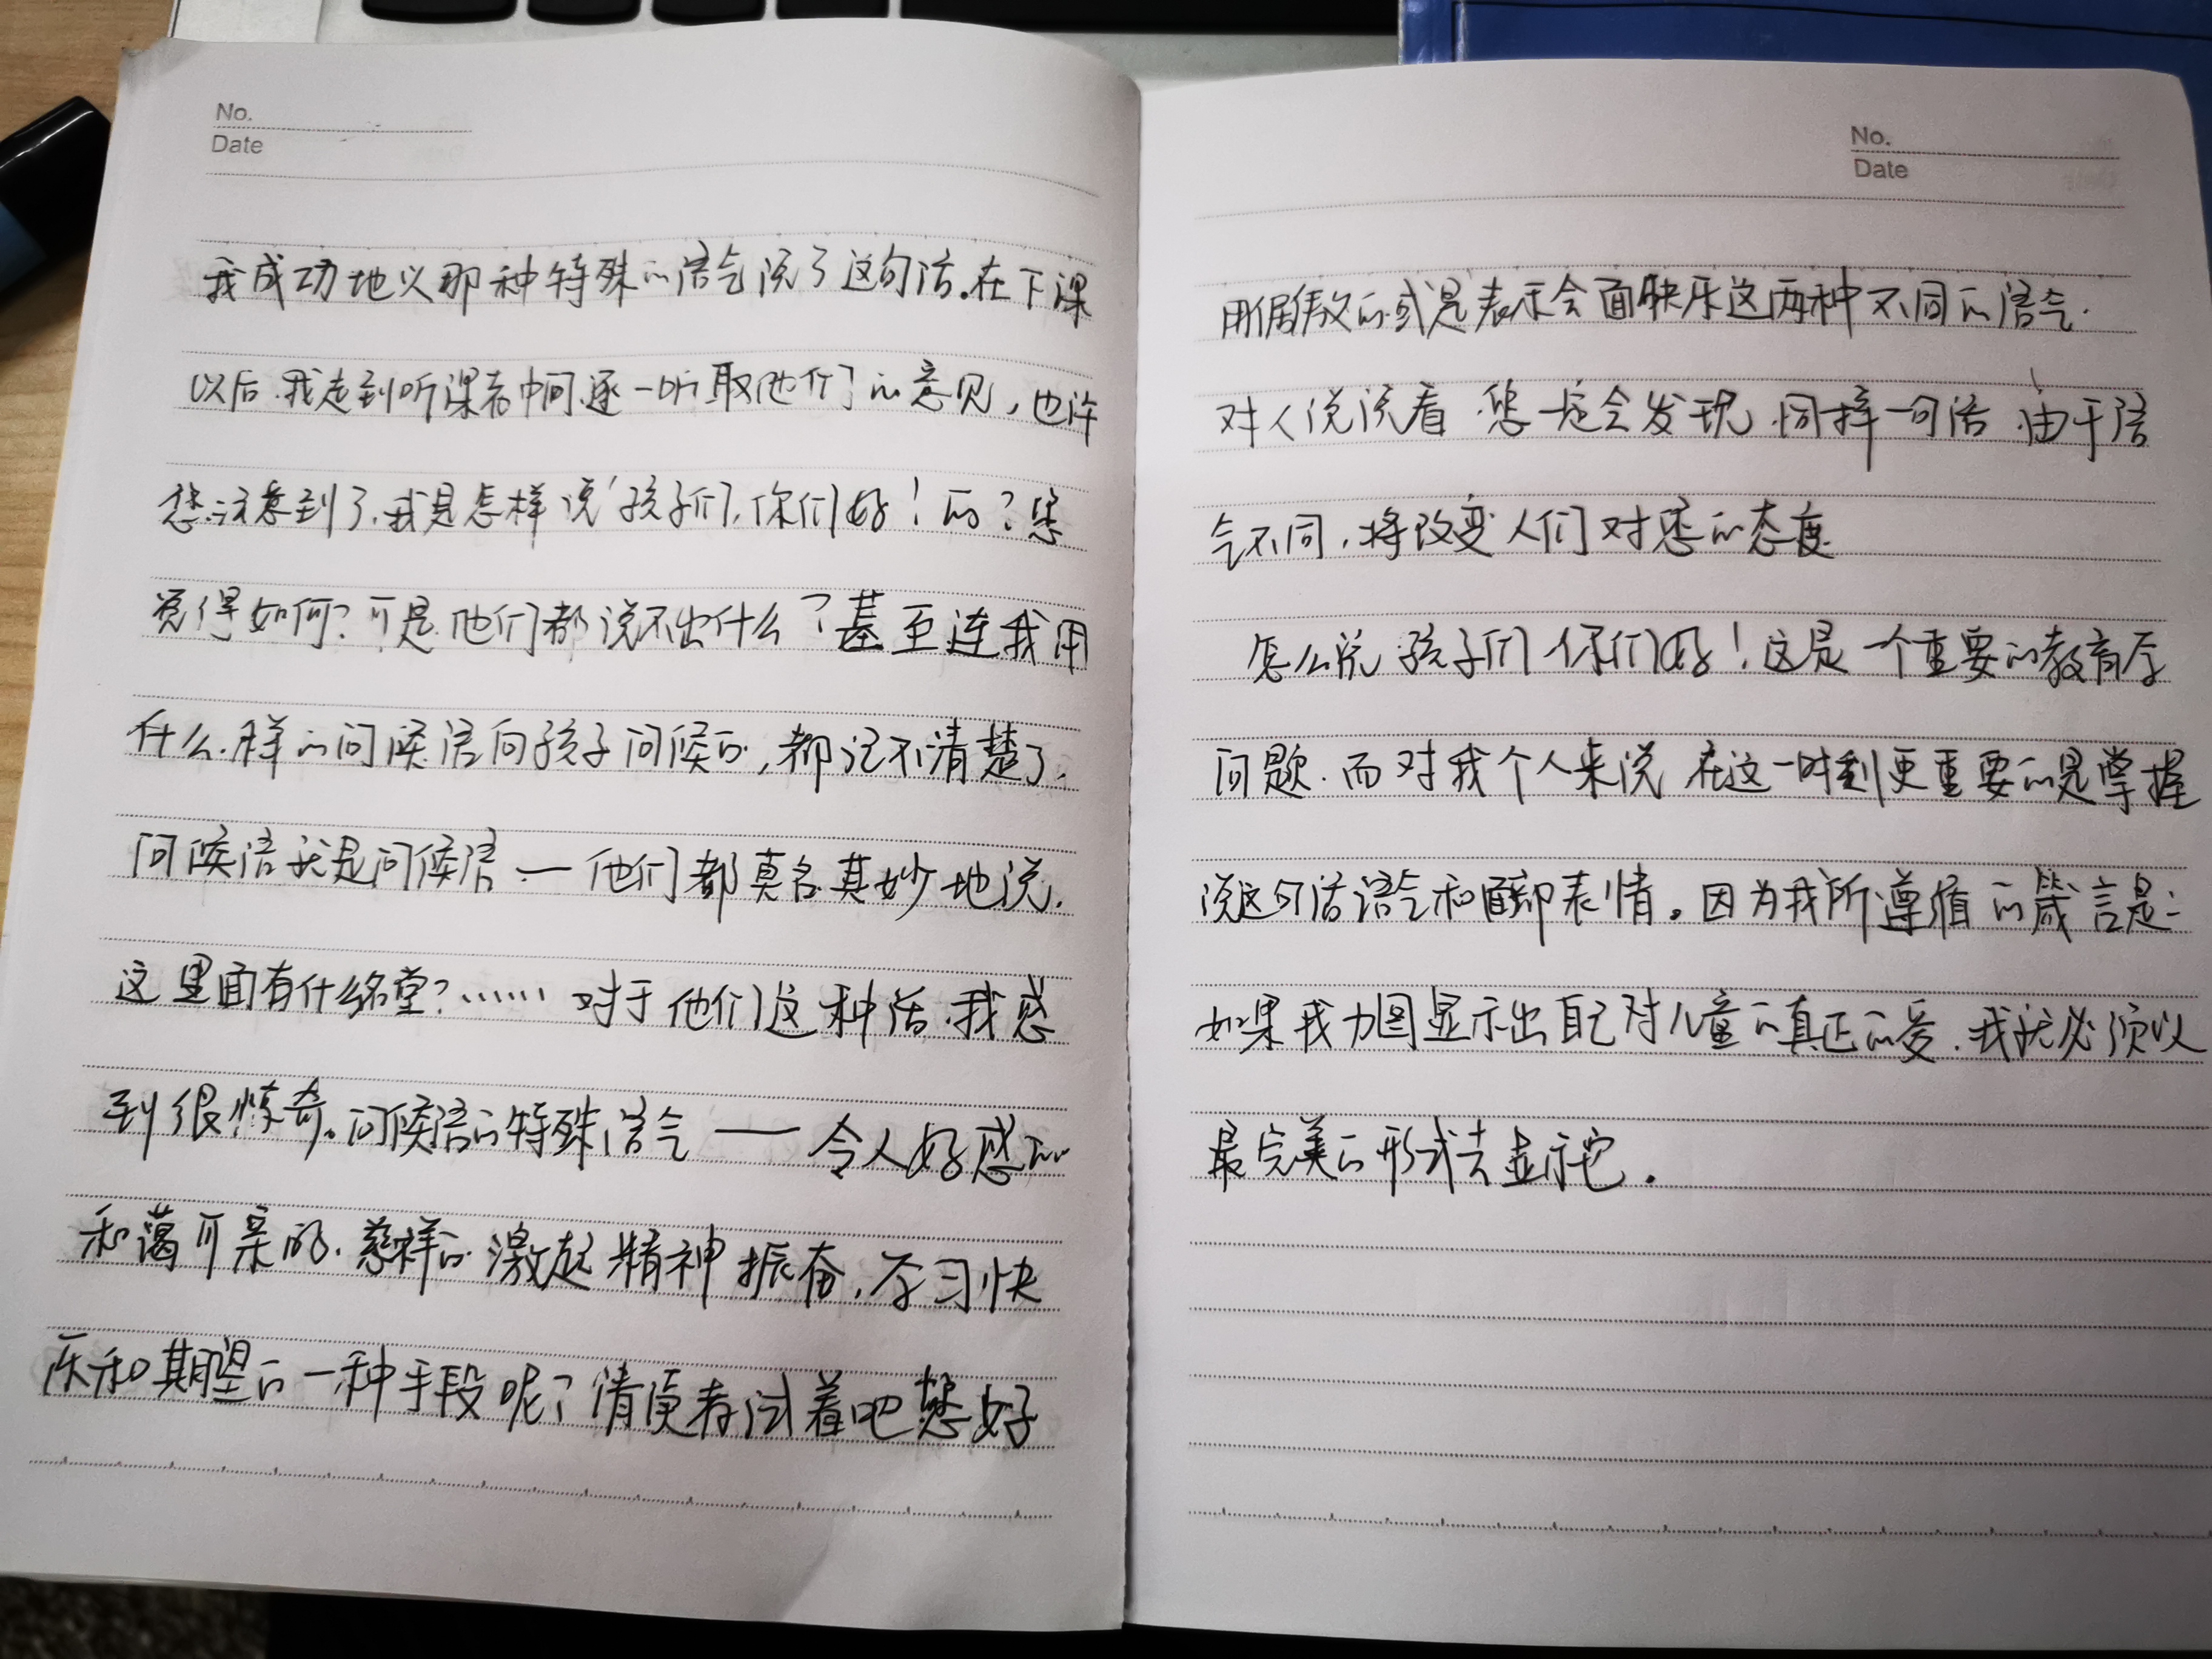 No.
Date
我成功地以那种特殊的语气说了这句话.在下课
以后.我走到听课者中间.逐一听取他们的意见,也许
您注意到了.我是怎样说'孩子们,你们好!的?您
觉得如何?可是.他们都说不出什么?甚至连我用
什么.样的问候语向孩子问候的,都记不清楚了.
问候语就是问候语——他们都莫名其妙地说.
这里面有什么名堂?……对于他们这种话.我感
到很惊奇。问候语的特殊语气——令人好感的
和蔼可亲的.慈祥的.激起精神振奋,学习快
乐和期望的一种手段呢?请便着试着吧您好
No.
Date
用倨傲的或是表示会面快乐这两种不同的语气.
对人说说看.您一定会发现.同样一句话.由于语
气不同,将改变人们对您的态度.
怎么说孩子们你们好!这是一个重要的教育学
问题.而对我个人来说在这一时刻更重要的是掌握
说这句话语气和面部表情。因为我所遵循的箴言是:
如果我力图显示出自己对儿童的真正的爱.我就必须以
最完美的形式去显示它.